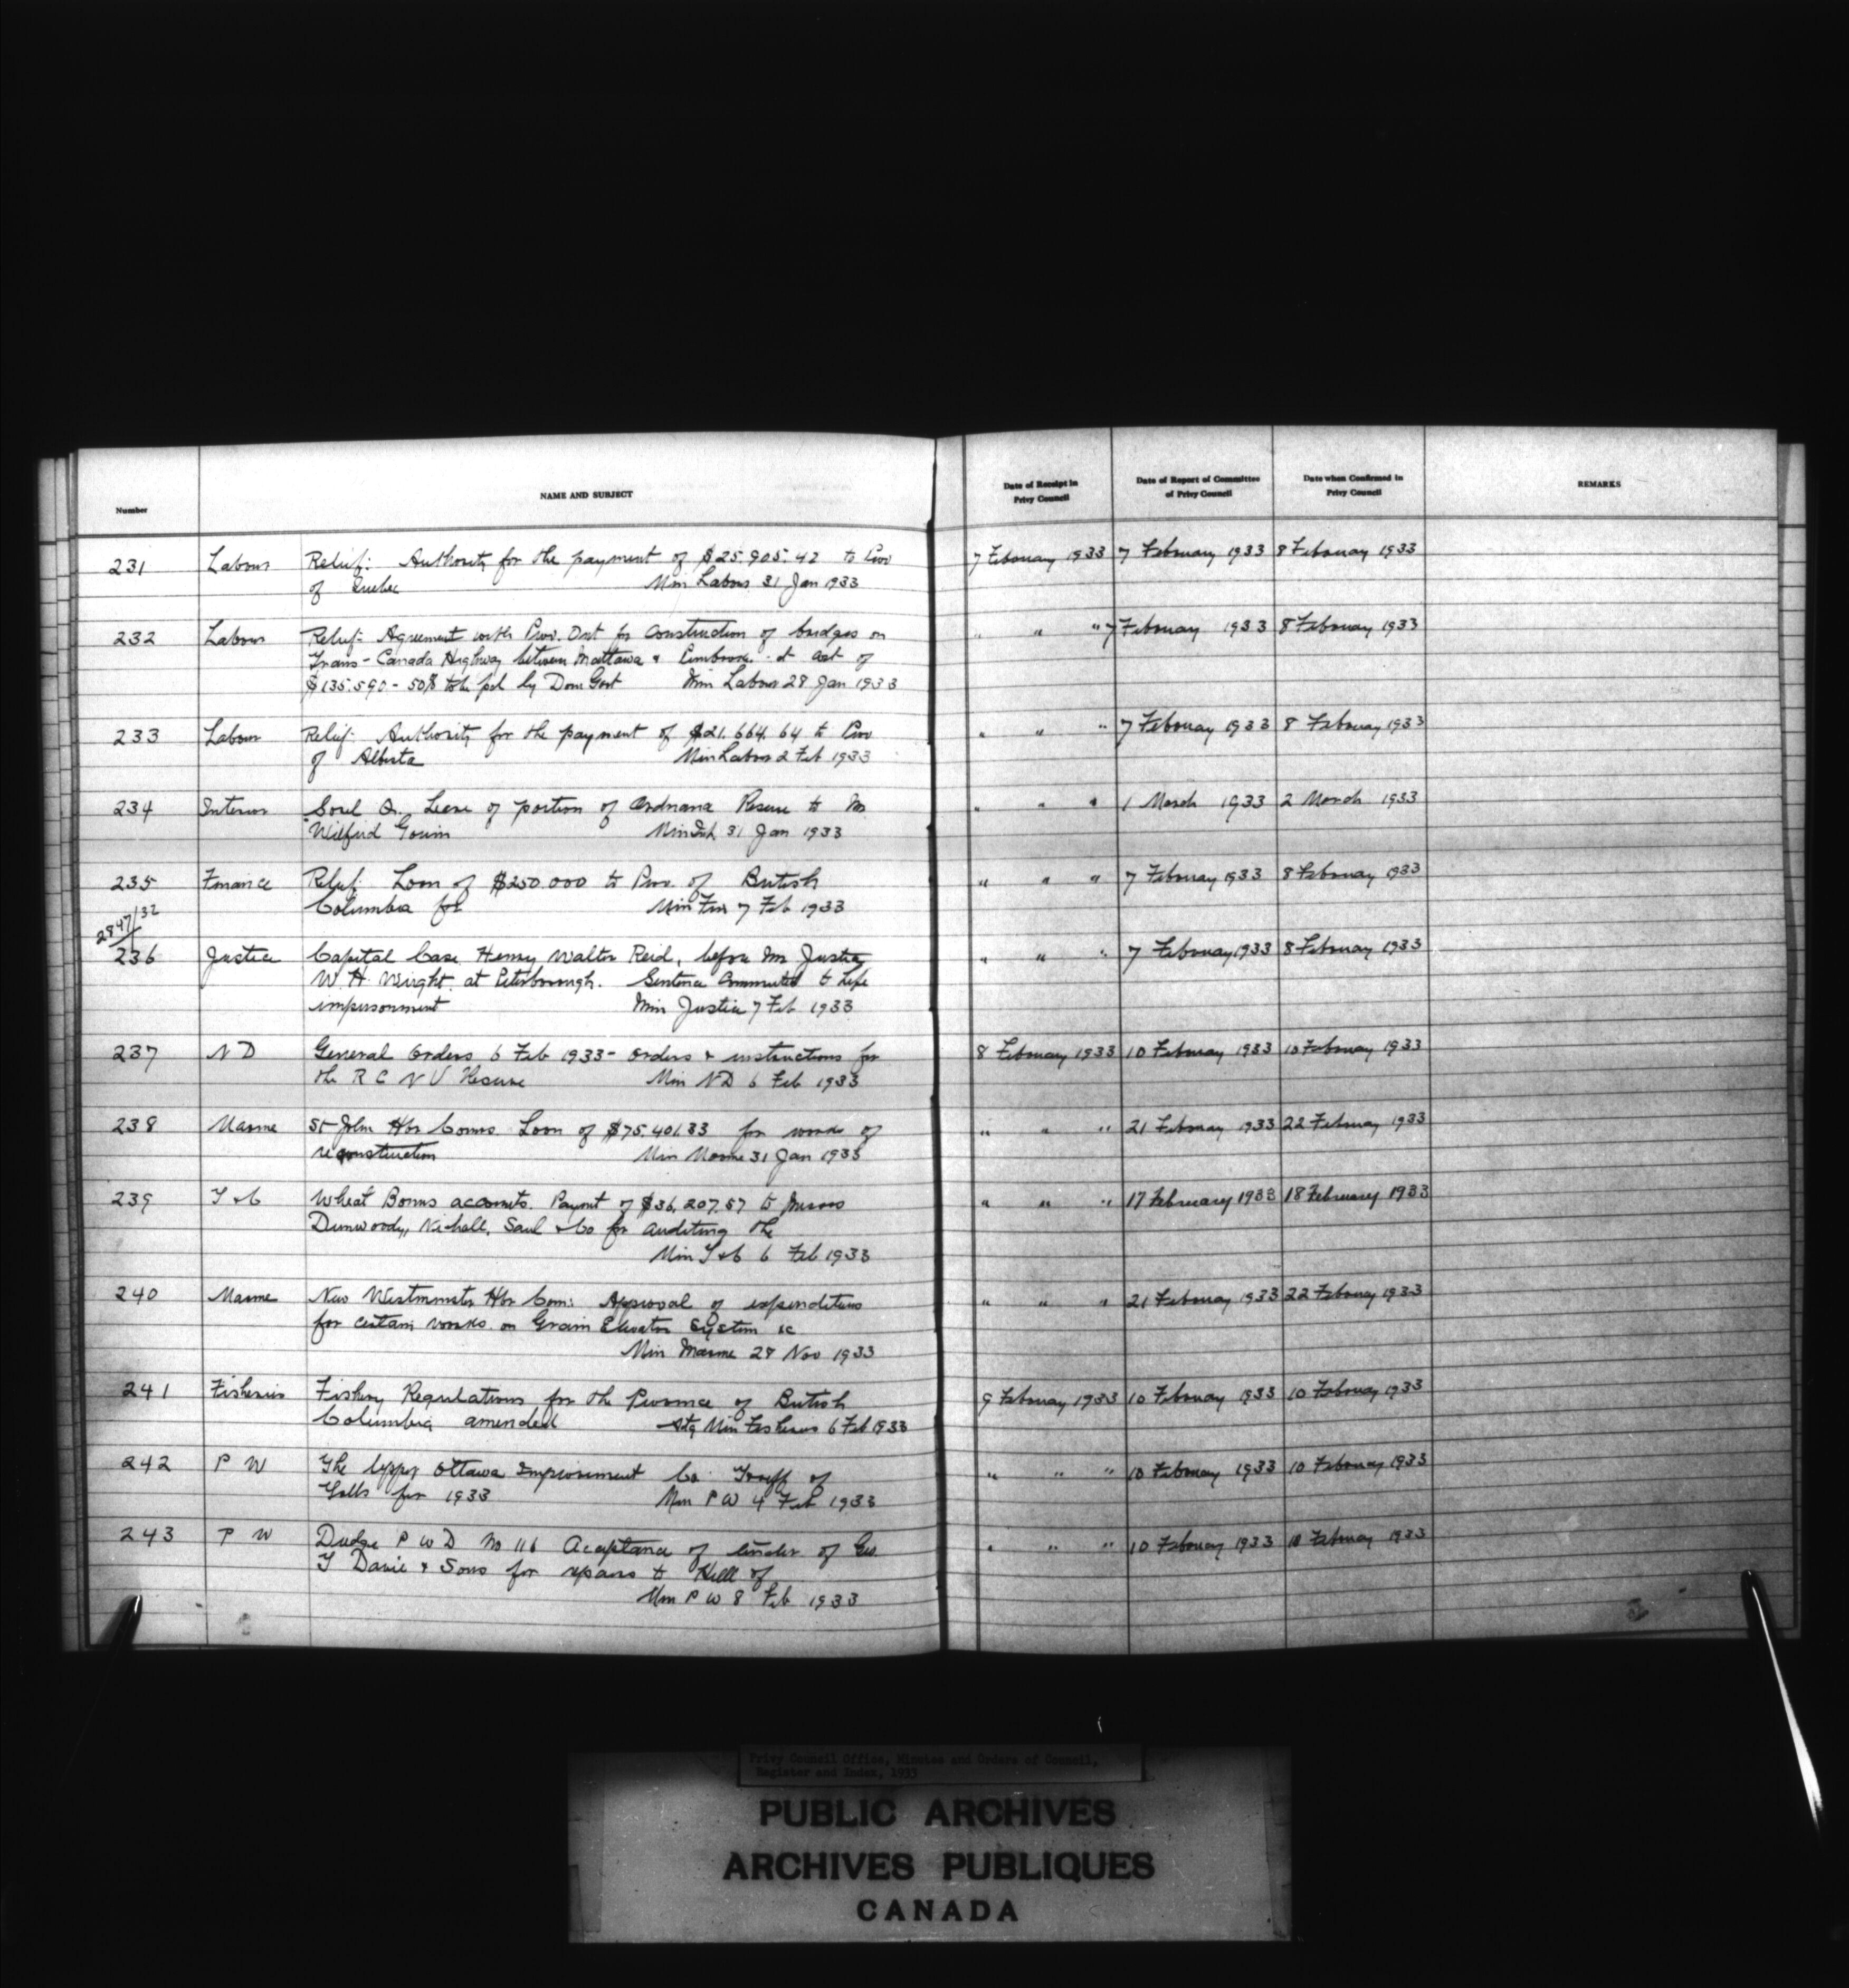 Number NAME AND SUBJECT Date of Receipt in Privy Council Date of Report of Committee of Privy Council Date when Confirmed in Privy Council REMARKS
231 Labour Relief: Authority for the payment of $25.905.42 to Prov 7 February 1933 7 February 1933 8 February 1933
of Quebec Min Labour 31 Jan 1933
232 Labour Relief: Agreement with Prov. Ont for construction of bridges on " " " 7 February 1933 8 February 1933
Trans-Canada Highway between Mattawa & Pembroke. at cost of
$135.590 - 50% to be pd by Dom Govt Min Labour 28 Jan 1933
233 Labour Relief: Authority for the payment of $21.664.64 to Prov " " " 7 February 1933 8 February 1933
of Alberta Min Labour 2 Feb 1933
234 Interior Sorel Q. Lease of portion of Ordnance Reserve to Mr " " " 1 March 1933 2 March 1933
Wilfrid Gouin Min Int 31 Jan 1933
235 Finance Relief: Loan of $250.000 to Prov. of British " " " 7 February 1933 8 February 1933
Columbia for Min Fin 7 Feb 1933
2847/32
236 Justice Capital Case Henry Walter Reid, before Mr Justice " " " 7 February 1933 8 February 1933
W. H. Wright. at Peterborough. Sentence commuted to life
imprisonment Min Justice 7 Feb 1933
237 N D General Orders 6 Feb 1933 - Orders & instructions for 8 February 1933 10 February 1933 10 February 1933
the R C N V Reserve Min ND 6 Feb 1933
238 Marine St John Hbr Comrs. Loan of $75.401.33 for works of " " " 21 February 1933 22 February 1933
reconstruction Min Marine 31 Jan 1933
239 T & C Wheat Bonus accounts. Paymt of $36,207.57 to Messrs " " " 17 February 1933 18 February 1933
Dunwoody, Nicholl, Saul & Co for auditing the
Min T & C 6 Feb 1933
240 Marine New Westminster Hbr Com: Approval of expenditures " " " 21 February 1933 22 February 1933
for certain works on Grain Elevator System &c
Min Marine 28 Nov 1933
241 Fisheries Fishery Regulations for the Province of British 9 February 1933 10 February 1933 10 February 1933
Columbia amended Atg Min Fisheries 6 Feb 1933
242 P W The Upper Ottawa Improvement Co. Tariff of " " " 10 February 1933 10 February 1933
Tolls for 1933 Min P W 4 Feb 1933
243 P W Dredge P W D No 116 Acceptance of tender of Geo. " " " 10 February 1933 10 February 1933
T Davie & Sons for repairs to Hull of
Min P W 8 Feb 1933
Privy Council Office, Minutes and Orders of Council,
Register and Index, 1933
PUBLIC ARCHIVES
ARCHIVES PUBLIQUES
CANADA